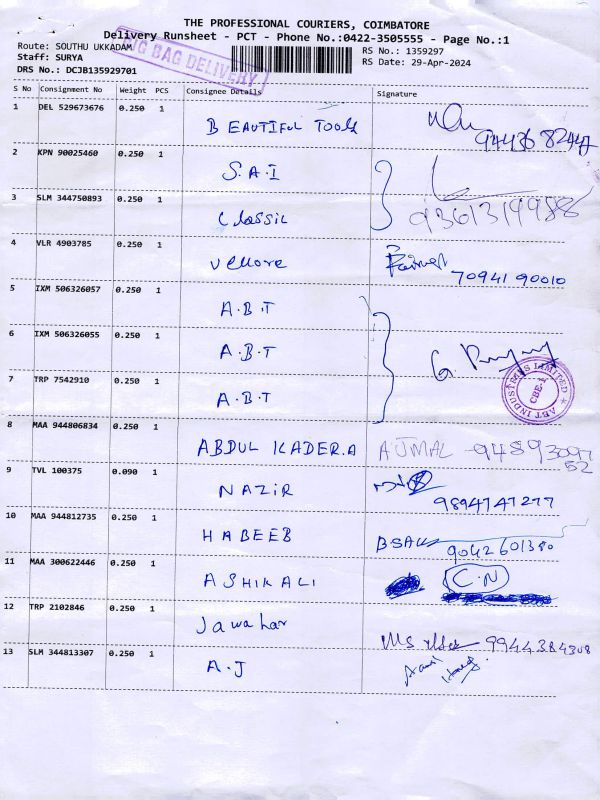 THE PROFESSIONAL COURIERS, COIMBATORE
Delivery Runsheet - PCT - Phone No.:0422-3505555 - Page No.:1
Route: SOUTHU UKKADAM
RS No.: 1359297
Staff: SURYA
RS Date: 29-Apr-2024
DRS No.: DCJB135929701
BAG DELIVERY
S No Consignment No Weight PCS Consignee Details Signature
1 DEL 529673676 0.250 1 BEAUTIFUL TOOLS 94436 82447
2 KPN 90025460 0.250 1 S.A.I
3 SLM 344750893 0.250 1 Classic 9361319988
4 VLR 4903785 0.250 1 Vellore 70941 90010
5 IXM 506326057 0.250 1 A.B.T
6 IXM 506326055 0.250 1 A.B.T
7 TRP 7542910 0.250 1 A.B.T
ABT INDUSTRIES LIMITED
CBE-1
8 MAA 944806834 0.250 1 ABDUL KADER.A AJMAL -94893097
52
9 TVL 100375 0.090 1 NAZIR 9894747277
10 MAA 944812735 0.250 1 HABEEB 9042601380
11 MAA 300622446 0.250 1 ASHIK ALI C.N
12 TRP 2102846 0.250 1 Jawahar 9944384308
13 SLM 344813307 0.250 1 A.J